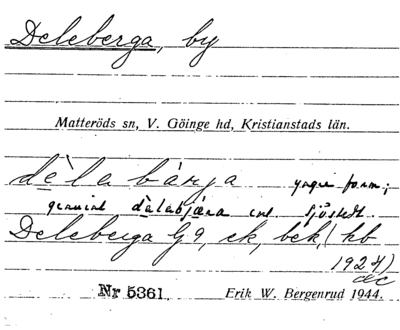 Deleberga, by
Matteröds sn, V. Göinge hd, Kristianstads län.
dèlabárja yngre form;
genuint dèlabjæra enl. Sjöstedt.
Deleberga Gg, ek, bek, (kb
1924)
Nr 5361. Erik W. Bergenrud 1944.